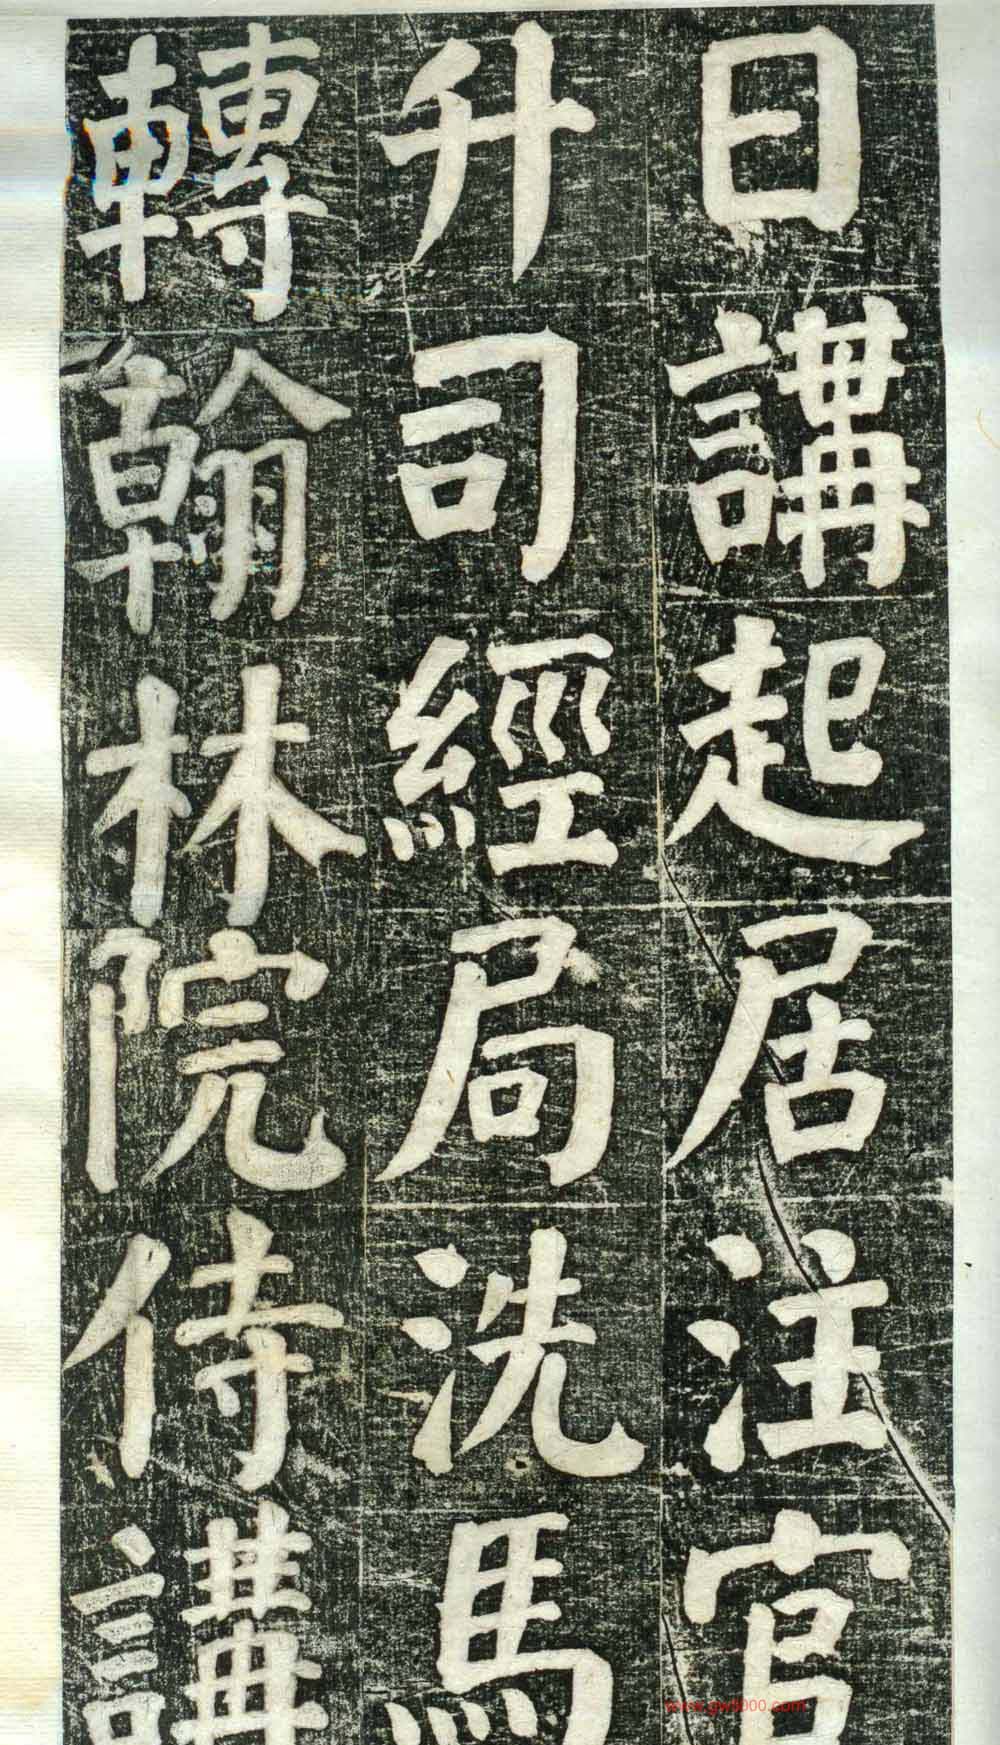 日講起居注官
升司經局洗馬
轉翰林院侍講
www.gw8000.com